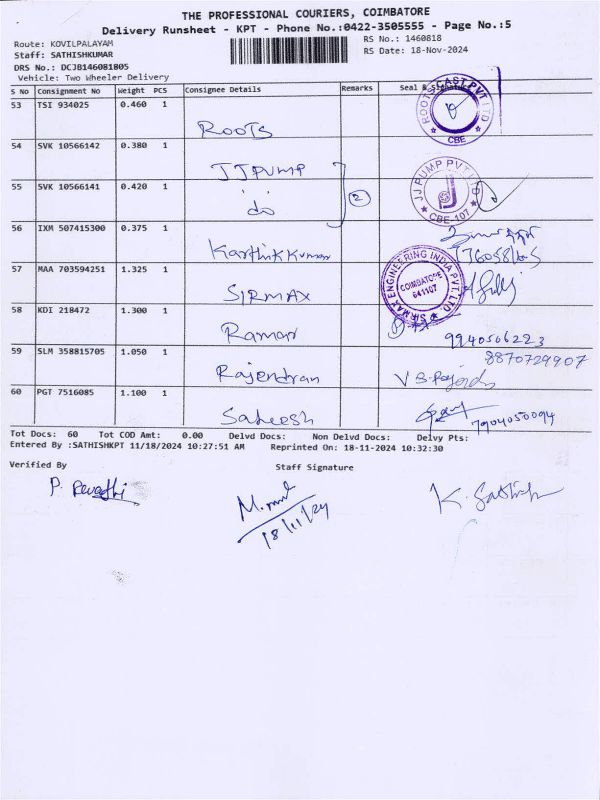 THE PROFESSIONAL COURIERS, COIMBATORE
Delivery Runsheet - KPT - Phone No.:0422-3505555 - Page No.:5
Route: KOVILPALAYAM
RS No.: 1460818
Staff: SATHISHKUMAR
RS Date: 18-Nov-2024
DRS No.: DCJB146081805
Vehicle: Two Wheeler Delivery
S No Consignment No Weight PCS Consignee Details Remarks Seal & Signature
53 TSI 934025 0.460 1 Roots
ROOTS CAST PVT LTD CBE
54 SVK 10566142 0.380 1 JJ PUMP
55 SVK 10566141 0.420 1 do 2
JJ PUMP PVT LTD CBE-107
56 IXM 507415300 0.375 1 Karthik Kumar
57 MAA 703594251 1.325 1 SIRMAX
SIRMAX ENGINEERING INDIA PVT. LTD. COIMBATORE 641107
58 KDI 218472 1.300 1 Raman 9940506223
59 SLM 358815705 1.050 1 Rajendran 8870729907
60 PGT 7516085 1.100 1 Satheesh 7904050094
Tot Docs: 60 Tot COD Amt: 0.00 Delvd Docs: Non Delvd Docs: Delvy Pts:
Entered By :SATHISHKPT 11/18/2024 10:27:51 AM Reprinted On: 18-11-2024 10:32:30
Verified By Staff Signature
P. Revathi
18/11/24
K. Sathish